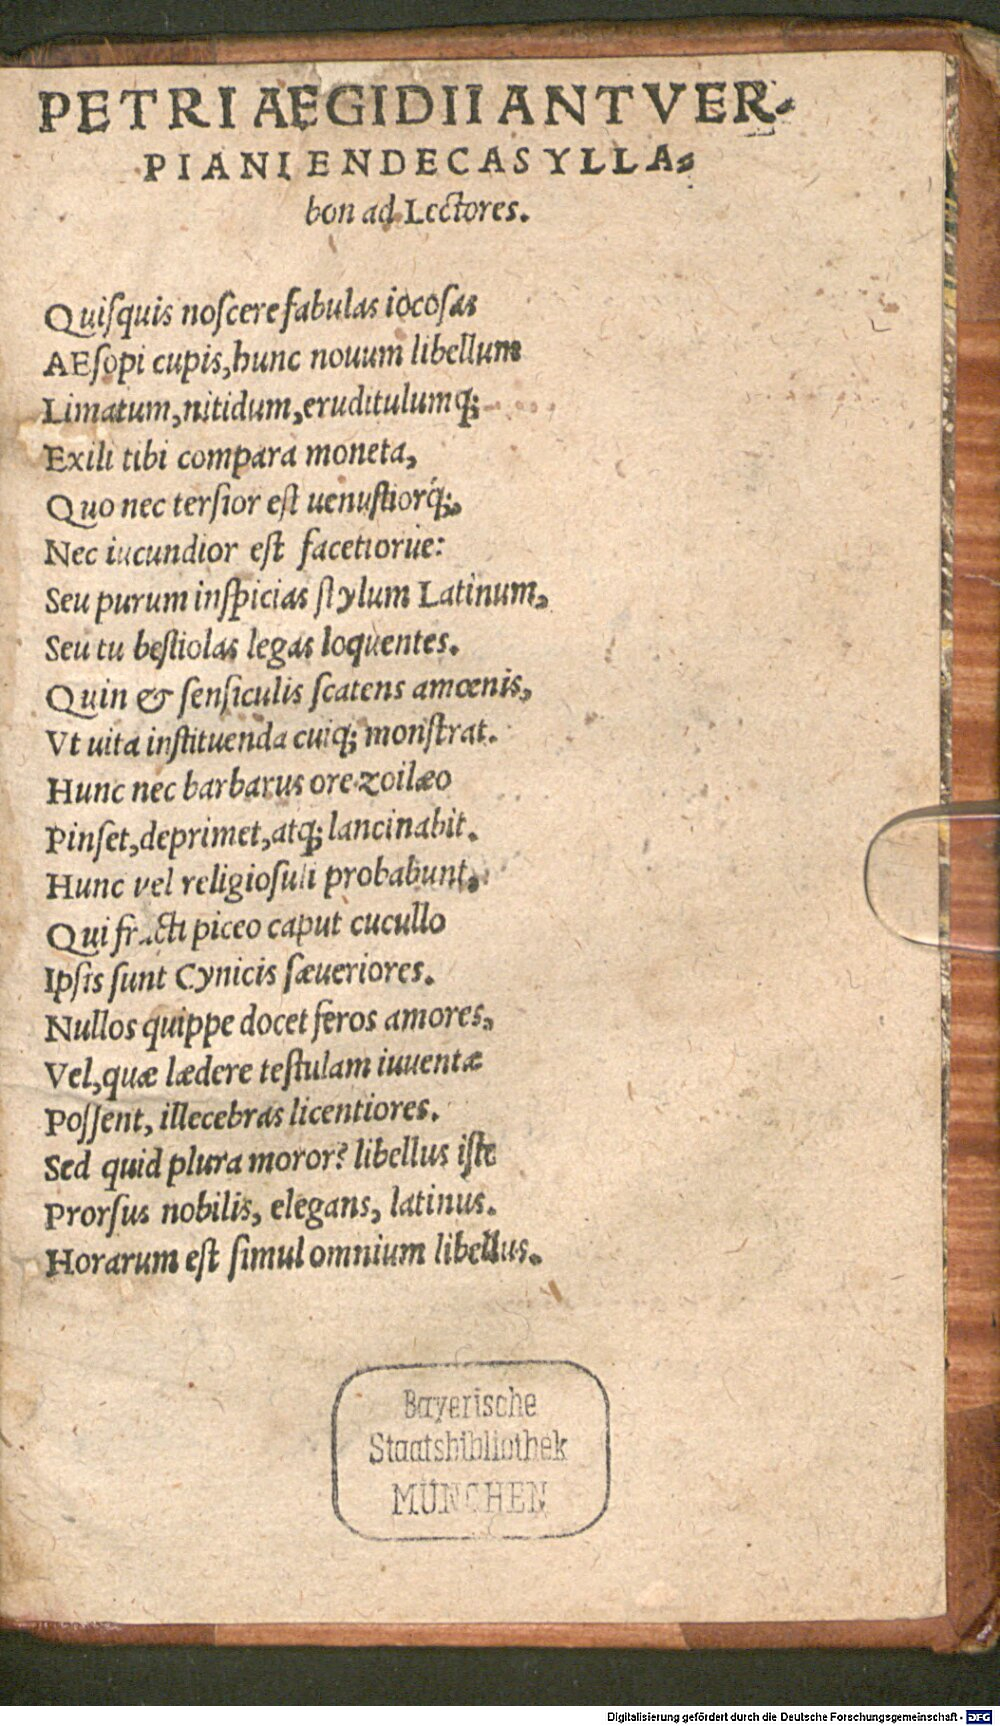 PETRI AEGIDII ANTVER-
PIANI ENDECASYLLA-
bon ad Lectores.
Quiſquis noſcere fabulas iocoſas
AEſopi cupis, hunc nouum libellum
Limatum, nitidum, eruditulumq;
Exili tibi compara moneta,
Quo nec terſior eſt uenuſtiorq́;,
Nec iucundior eſt facetiorue:
Seu purum inſpicias ſtylum Latinum,
Seu tu beſtiolas legas loquentes.
Quin & ſenſiculis ſcatens amœnis,
Vt uita inſtituenda cuiq; monſtrat.
Hunc nec barbarus ore zoilæo
Pinſet, deprimet, atq; lancinabit.
Hunc vel religioſuli probabunt,
Qui piceo caput cucullo
Ipſis ſunt Cynicis ſæueriores.
Nullos quippe docet feros amores,
Vel, quæ lædere teſtulam iuuentæ
Poſſent, illecebras licentiores.
Sed quid plura moror? libellus iſte
Prorſus nobilis, elegans, latinus.
Horarum eſt ſimul omnium libellus.
Bayerische
Staatsbibliothek
MÜNCHEN
Digitalisierung gefördert durch die Deutsche Forschungsgemeinschaft - DFG